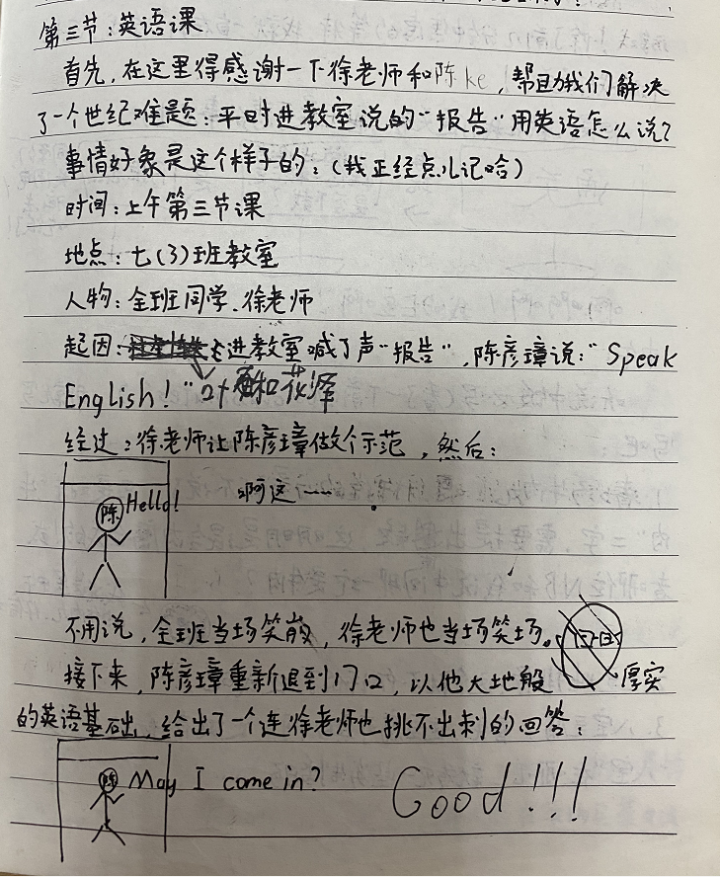 第三节：英语课
首先，在这里得感谢一下徐老师和陈ke，帮助我们解决
了一个世纪难题：平时进教室说的“报告”用英语怎么说？
事情好象是这个样子的：（我正经点儿记哈）
时间：上午第三节课
地点：七（3）班教室
人物：全班同学、徐老师
起因：进教室喊了声“报告”，陈彦璋说：“Speak
English！”
经过：徐老师让陈彦璋做个示范，然后：
陈 Hello! 啊这……
不用说，全班当场笑散，徐老师也当场笑场。
接下来，陈彦璋重新退到门口，以他大地般厚实
的英语基础，给出了一个连徐老师也挑不出刺的回答：
陈 May I come in? Good!!!